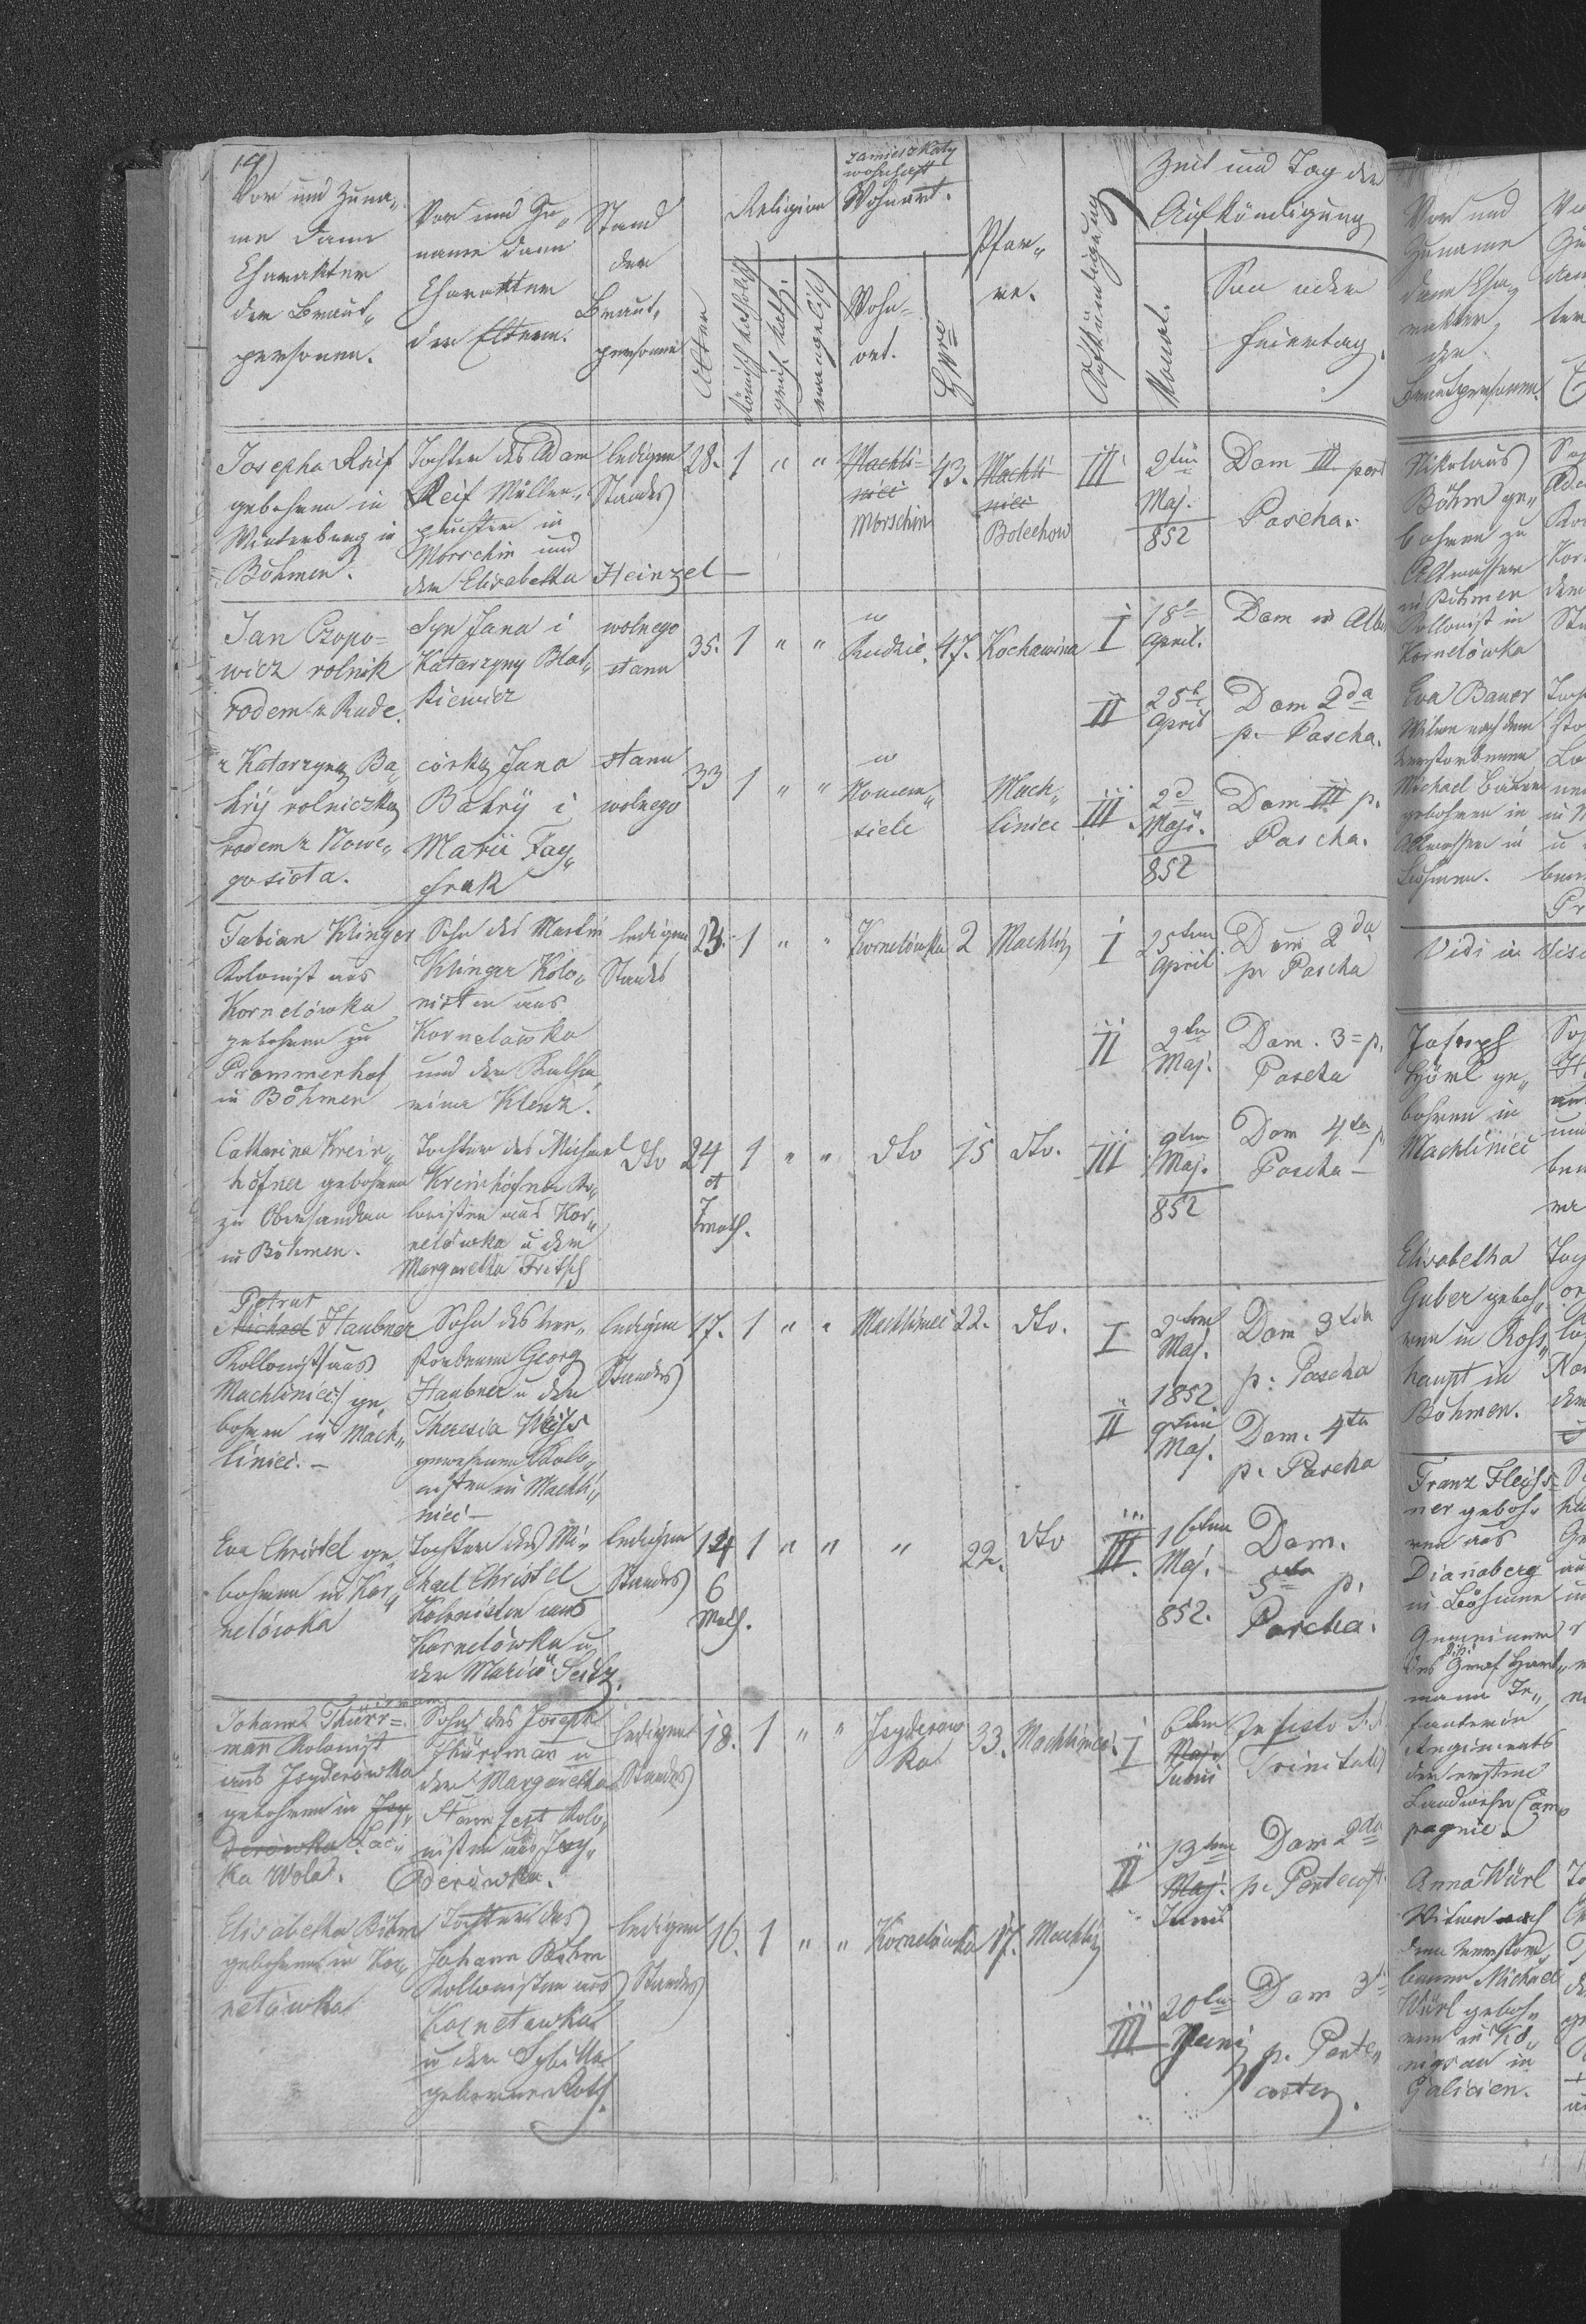 14)
Vor und Zuna„
me dann
Charakter
der Braut„
personen.
Vor und Zu„
name dann
Charakter
der Eltern.
Stand
der
Braut„
personen
Alter
Religion
römisch katholisch
griech. kath.
evangelisch
zamieszkały
wohnhaft
Wohnort.
Wohn-
ort.
Hnro
Pfar„
re.
Aufkündigung
Zeit und Tag der
Aufkündigung
Monat.
Son oder
Feiertag.
Josepha Reif
gebohren in
Winterberg in
Böhmen.
Tochter des Adam
Reif Müller„
in
Morschin und
der Elisabetha Heinzel
ledigen
Standes
28. 1 " "
Machli=
niec
Morschin
43.
Machli
niec
Bolechow
III
2ten
Maj.
852
Dom III. post
Pascha.
Jan Czopo=
wicz rolnik
rodem z Rude.
Syn Jana i
Katarzyny Blat„
kiewicz
wolnego
stanu
35. 1 " "
w
Rudzie.
47.
Kochawina
I
18t
April.
Dom in Albis
II
25t
April
Dom 2da
p. Pascha.
z Katarzyną Ba„
krÿ rolniczką
rodem z Nowe„
go siota.
córką Jana
Bakrÿ i
Marii Fay„
frak
stanu
wolnego
33 1 " "
w
Nowem„
siele
Mach„
liniec
III.
2d
Maji.
852
Dom III p.
Pascha.
Fabian Klinger
Kolonist aus
Kornelówka
gebohren zu
Prommenhof
in Böhmen
Sohn des Martin
Klinger Kolo„
nisten aus
Kornelówka
und der Katha„
rina Klenz.
ledigen
Standes
23. 1 " "
Kornelówka 2 Machliz
I
25ten
April
Dom 2da
p. Pascha
II
2ten
Maj.
Dom. 3= p.
Pascha
Catharina Krein„
höfner gebohren
zu Obersandau
in Böhmen.
Tochter des Michael
Kreinhöfner Ko„
lonisten aus Kor„
nelówka u der
Margaretha Fritsch
dto
24
et
7
Month.
1 " "
dto
15
dto.
III
9ten
Maj.
852
Dom 4ta p
Pascha
Petrus
Michael Haubner
Kollonist aus
Machliniec ge„
bohren in Mach„
liniec.
Sohn des ver„
storbenen Georg
Haubner u der
Theresia Weiss
gewesenen Kolo„
nisten in Machli„
niec
ledigen
Standes
17. 1 " "
Machliniec 22. dto.
I
2ten
Maj.
1852
Dom 3tia
p. Pascha
II
9ten
Maj.
Dom. 4ta
p. Pascha
Eva Christel ge„
bohren in Kor„
nelówka
Tochter des Mi„
chael Christel
Kolonisten aus
Kornelówka u
der Maria Seitz.
ledigen
Standes
14
6
Mon.
1 " " "
22.
dto
III.
16ten
Maj.
852.
Dom.
5ta p.
Pascha.
Johann Thürr=
man Kolonist
aus Isyderówka
gebohren in Isy„
derówka Lac„
ka Wola.
Sohn des Joseph
Thürrman u
der Margaretha
Kolo„
nisten aus Isy„
derówka.
ledigen
Standes
18. 1 " "
Isyderow
ka
33. Machliniec.
I
6ten
Maj
Junii
In festo S.S.
Trinitatis
II
13ten
Maj.
Junii
Dom 2da
p. Pentecost.
Elisabetha Böhm
gebohren in Kor„
nelówka
Tochter des
Johann Böhm
Kollonisten aus
Kornelówka
u der Sybilla
geborene Roth.
ledigen
Standes
16. 1 " "
Kornelówka 17. Machliz
III
20ten
Junij
Dom 3ti
p. Pente„
costen.
Vor und
Zuname
dann Cha„
rakter
der
Brautpersonen.
Nikolaus
Böhm ge„
bohren zu
Altwasser
in Böhmen
Kollonist in
Kornelówka
Eva Bauer
Witwe nach dem
verstorbenen
Michael Bauer
gebohren in
Altwasser in
Böhmen.
Vidi in Visi
Joseph
Hörl ge„
bohren in
Machliniec
Elisabetha
Guber geboh„
ren in Ross„
haupt in
Böhmen.
Franz Fleiss=
ner geboh„
ren aus
Dianaberg
in Böhmen
Gemeiner
des Graf Hart„
mann In„
fanterie
Regiments
der ersten
Landwehr Com„
pagnie.
Anna Würl
Witwe nach
dem verstor„
benen Michael
Würl geboh„
ren in Kö„
nigsau in
Galicien.